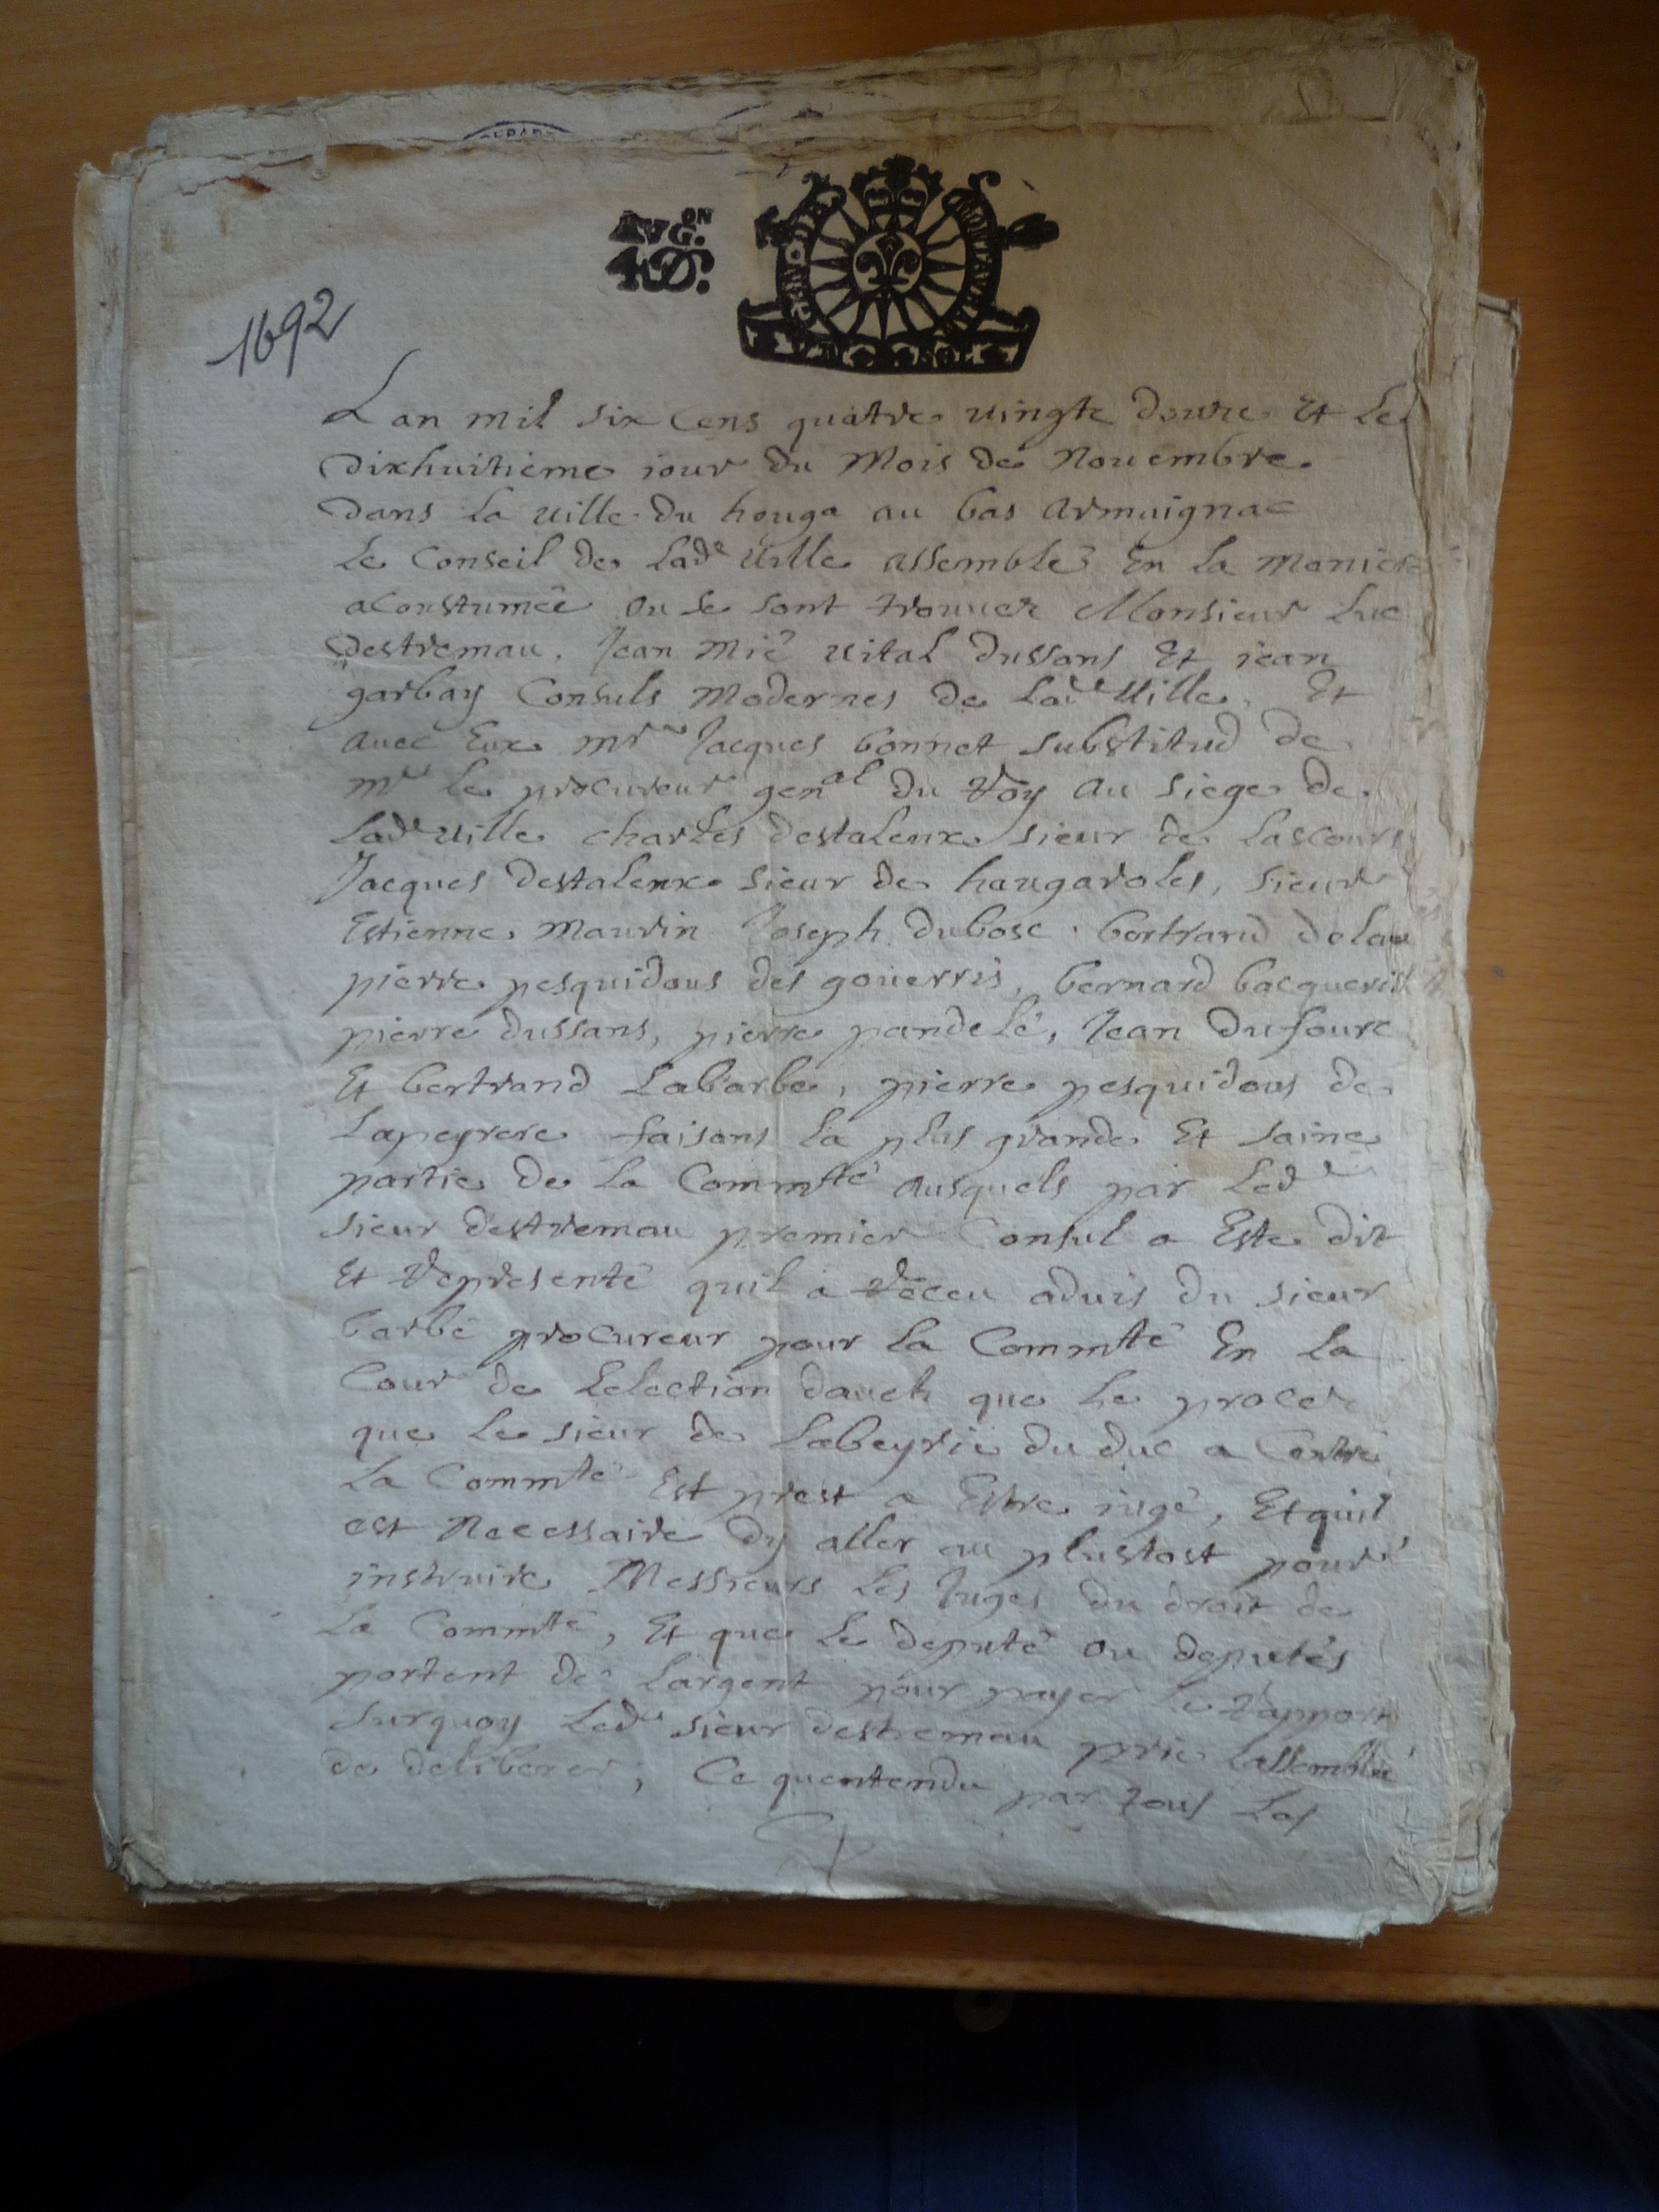 AVG.ON
4D.
GEN. DE MONTAUBAN
SOL
1692
Lan mil six Cens quatre uingts douze Et le
dixhuitieme iour du Mois de Nouembre
dans la uille du houga au bas armaignac
Le Conseil de Lade Uille assemblé En la maniere
acoustumée ou se sont trouuez Monsieur Luc
destremau, Jean Mié uital dussans Et jean
garbay Consuls Modernes de Lade Uille, Et
auec Eux mre Jacques bonnet substitud de
mr le procureur genal du Roy au siege de
Lade uille charles destalenx sieur de Lascours
Jacques destalenx sieur de haugaroles, sieur
Estienne Maurin Joseph dubosc bertrand delau
pierre pesquidous des gouerris, bernard bacquerist
pierre dussans, pierre pandelé, Jean dufourc
Et bertrand Labarbe, pierre pesquidous de
Lapeyrere faisans la plus grande Et saine
partie de la Commté ausquels par Ledt
sieur destremau premier Consul a Este dit
Et Representé quil a Receu aduis du sieur
barbé procureur pour la Commté En la
Cour de Lelection dauch que le procez
que le sieur de Labeyrie du duc a Contre
la Commté Est prest a Estre iugé, Et quil
est Necessaire dy aller au plustost pour
instruire Messieurs les Juges du droit de
la Commté, Et que le deputé ou deputés
portent de Largent pour payer le Rapport
surquoy Ledt sieur destremau prie Lassemblée
de deliberer; Ce quentendu par tous Les